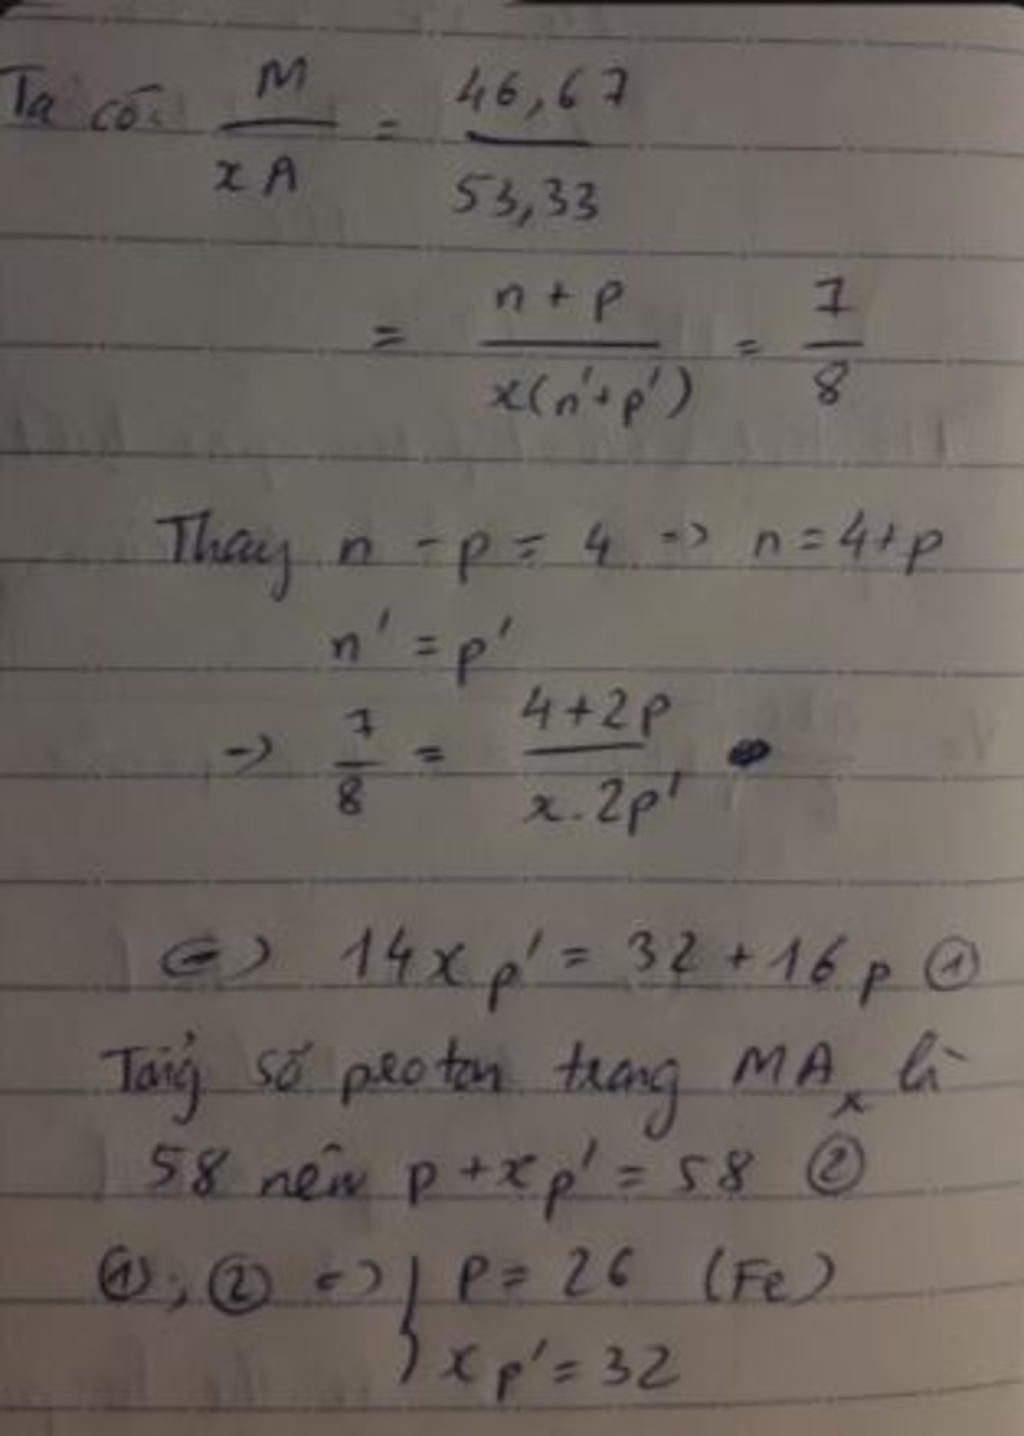 Ta có: M / xA = 46,67 / 53,33
= n + p / x(n'+p') = 7 / 8
Thay n - p = 4 => n = 4+p
n' = p'
-> 7 / 8 = 4+2p / x.2p'
<=> 14xp' = 32 + 16p ①
Tổng số proton trong MAx là
58 nên p + xp' = 58 ②
①, ② => { p = 26 (Fe)
xp' = 32